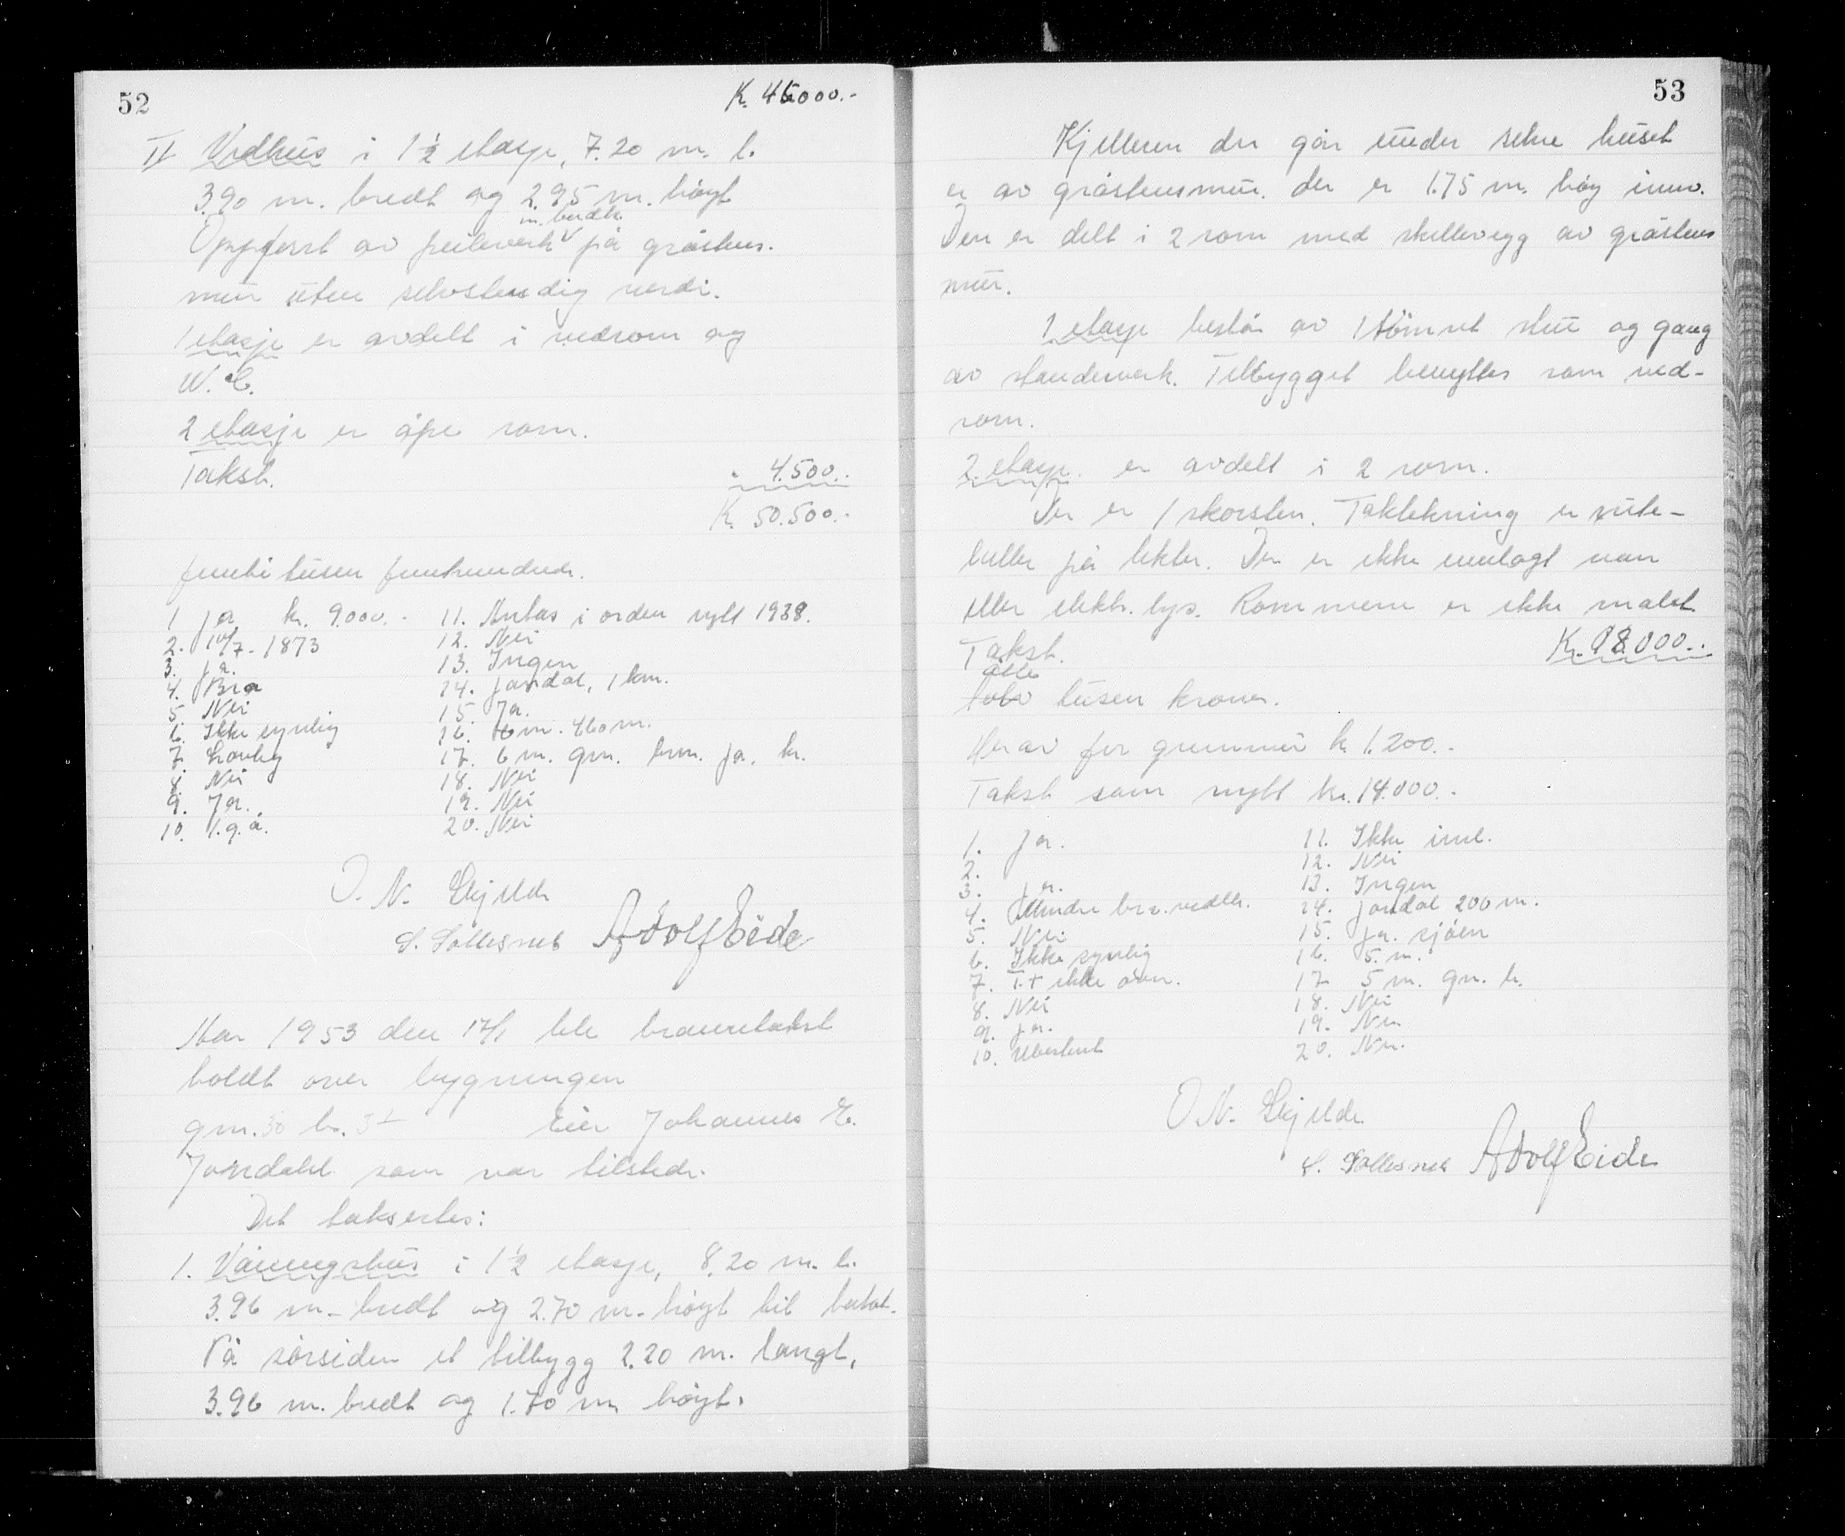 52
K. 46000.-
II Vedhus i 1½ etasje, 7.20 m. l.
3.90 m. bredt og 2.95 m. høgt
m. bordk
Oppført av på gråstens.
mur uten selvstendig verdi.
1 etasje er avdelt i vedrom og
W.C.
2 etasje er åpe rom.
Takst. " 4.500.-
K. 50.500.-
femti tusen femhundrede.
1 Ja kr. 9.000.-
2. 10/7-1873
3. Ja.
4. Bra
5. Nei
6. Ikke synlig
7. Lovlig
8. Nei
9. Ja.
10. I.g.å.
11. Antas i orden nytt 1938.
12. Nei
13. Ingen
14. Jondal, 1 km.
15. Ja.
16. 6 m. 460 m.
17. 6 m. gm. brm. ja. kr.
18. Nei
19. Nei
20. Nei
O. N. Skjelde
S. Sollesnes Adolf Eide
Aar 1953 den 17/1 ble branntakst
holdt over bygningen
gm. 50 br. Eier Johannes E.
Jondahl som var tilstede.
Det taksertes:
1. Våningshus i 1½ etasje, 8.20 m. l.
3.96 m. bredt og 2.70 m. høgt til
På sørsiden et tilbygg 2.20 m. langt,
3.96 m. bredt og 1.70 m høgt.
53
Kjelleren der går under selve huset
er av gråstensmur. der er 1.75 m. høg innv.
Den er delt i 2 rom med skillevegg av gråstens
mur.
1 etasje består av 1 tømret stue og gang
av standerverk. Tilbygget benyttes som ved-
rom.
2. etasje er avdelt i 2 rom.
Der er 1 skorsten. Taktekning er rute-
heller på lekter. Der er ikke innlagt vann
eller elektr. lys. Rommene er ikke malet
Takst. Kr. 8.000.-
åtte
tolv tusen kroner.
Herav for grunnmur k 1.200.-
Takst som nytt kr. 14.000.-
1. Ja.
2.
3. Ja.
4. Mindre bra vedlh.
5. Nei
6. Ikke synlig
7. T.+ ikke over.
8. Nei
9. Ja.
10. Ubestemt
11. Ikke innl.
12. Nei
13. Ingen
14. Jondal 200 m.
15. Ja. sjøen
16. 5. m.
17 5 m. gm. b.
18. Nei
19. Nei
20. Nei.
O. N. Skjelde
S. Sollesnes Adolf Eide